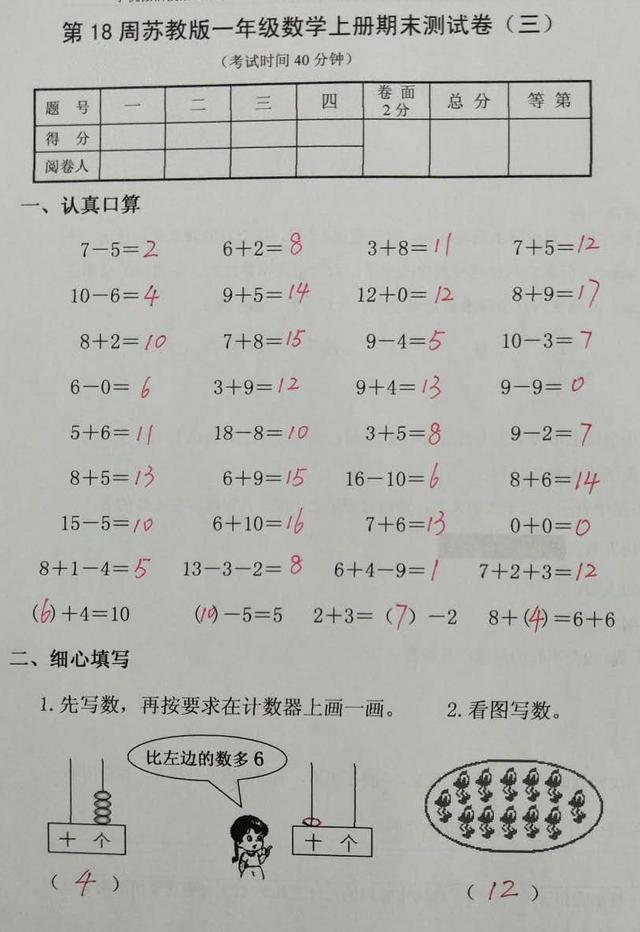 第 18 周苏教版一年级数学上册期末测试卷（三）
（考试时间 40 分钟）
题 号 一 二 三 四 卷 面 2 分 总 分 等 第
得 分
阅卷人
一、认真口算
7－5＝2 6＋2＝8 3＋8＝11 7＋5＝12
10－6＝4 9＋5＝14 12＋0＝12 8＋9＝17
8＋2＝10 7＋8＝15 9－4＝5 10－3＝7
6－0＝6 3＋9＝12 9＋4＝13 9－9＝0
5＋6＝11 18－8＝10 3＋5＝8 9－2＝7
8＋5＝13 6＋9＝15 16－10＝6 8＋6＝14
15－5＝10 6＋10＝16 7＋6＝13 0＋0＝0
8＋1－4＝5 13－3－2＝8 6＋4－9＝1 7＋2＋3＝12
(6)＋4＝10 (10)－5＝5 2＋3＝（7）－2 8＋(4)＝6＋6
二、细心填写
1. 先写数，再按要求在计数器上画一画。 2. 看图写数。
比左边的数多 6
十 个 十 个
（ 4 ） （ 12 ）